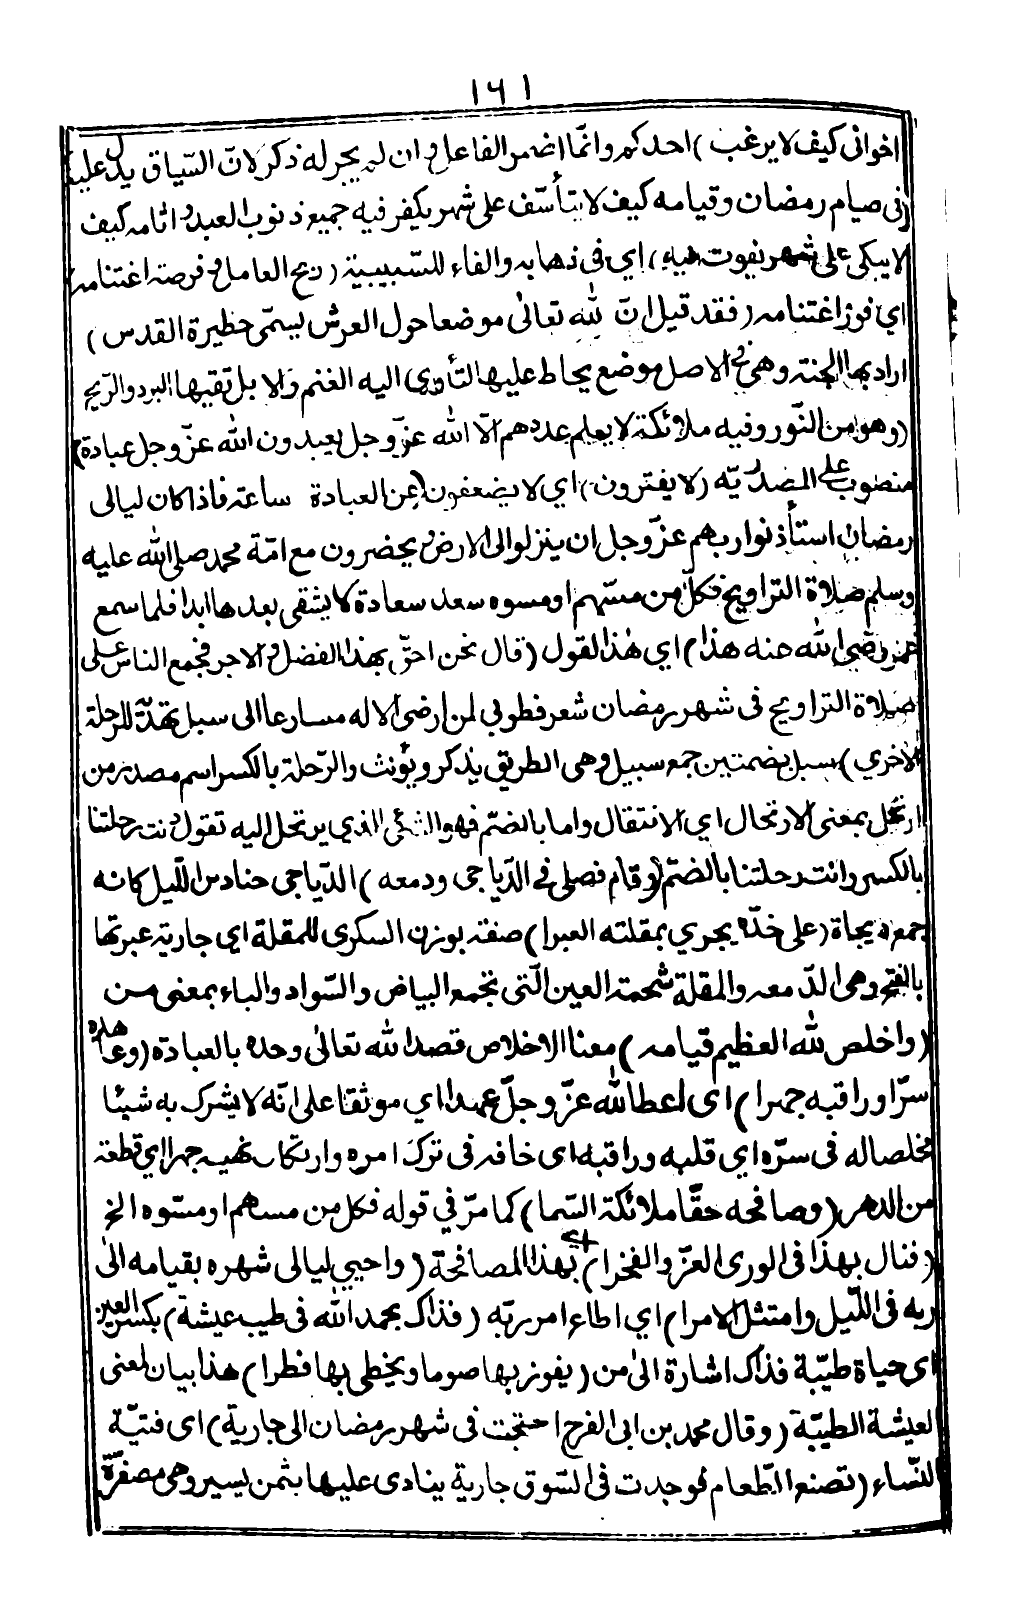 ١٦١
اخواني كيف لا يرغب) احدكم وانّما اضمر الفاعل وان لم يجر له ذكر لانّ السّياق يدل عليه
(في صيام رمضان وقيامه كيف لا يتأسّف على شهر يكفر فيه جميع ذنوب العبد واثامه كيف
لا يبكي على شهر يفوت فيه) اي في ذهابه والفاء للسّببيية (ربح العامل وفرصة اغتنامه)
اي فوز اغتنامه (فقد قيل انّ لله تعالى موضعا حول العرش يسمّى حظيرة القدس)
اراد بها الجنة وهي في الاصل موضع يحاط عليها لتأوي اليه الغنم والابل تقيها البرد والرّيح
(وهو من النّور وفيه ملائكة لا يعلم عددهم الّا الله عزّ وجل يعبدون الله عزّ وجل عبادة)
منصوب على المصدريّه (لا يفترون) اي لا يضعفون (عن العبادة ساعة فاذا كان ليالي
رمضان استأذنوا ربهم عزّ وجل ان ينزلوا الى الارض ويحضرون مع امّة محمد صلى الله عليه
وسلم صلاة التراويح فكلّ من مسّهم او مسوه سعد سعادة لا يشقى بعدها ابدا فلما سمع
عمر رضي الله عنه هذا) اي هذا القول (قال نحن احقّ بهذا الفضل والاجر فجمع الناس على
صلاة التراويح في شهر رمضان شعر فطوبي لمن ارضى الاله مسارعا الى سبل تهديّه للرحلة
الاخري) سبل بضمتين جمع سبيل وهي الطريق يذكر ويؤنث والرّحلة بالكسر اسم مصدر من
ارتحل بمعنى الارتحال اي الانتقال واما بالضّم فهو الشئ الذي يرتحل اليه تقول دنت رحلتنا
بالكسر وانت رحلتنا بالضّم (وقام فصلى في الدّياجى ودمعه) الدّياجى حنادس اللّيل كانه
جمع ديجاة (على خدّه يجري بمقلته العبرا) صفة بوزن السكرى للمقلة اي جارية عبرتها
بالفتح وهى الدّمعه والمقلة شحمة العين الّتى تجمع البياض والسّواد والباء بمعنى من
(واخلص لله العظيم قيامه) معنا الاخلاص قصد الله تعالى وحده بالعبادة (وعاهده
سرّا وراقبه جهرا) اى اعطا لله عزّ وجلّ عهدا اي موثقا على انّه لا يشرك به شيئا
مخلصا له في سرّه اي قلبه وراقبه اى خافه في ترك امره وارتكاب نهيه جهرا اي قطعة
من الدهر (وصافحه حقّا ملائكة السّما) كما مرّ في قوله فكل من مسهم او مسّوه الخ
(فنال بهذا في الورى العزّ والفخرا) اي بهذا المصافحة (واحيي ليالى شهره بقيامه الى
ربه في اللّيل وامتثل الامرا) اي اطاع امر ربّه (فذاك بحمد الله في طيب عيشة) بكسر العين
اى حياة طيّبة فذاك اشارة الى من (يفوز بها صوما ويخطى بها فطرا) هذا بيان لمعنى
العيشة الطيّبة (وقال محمد بن ابى الفرج احتجت في شهر رمضان الى جارية) اى فتيّة
النّساء (تصنع الطّعام فوجدت في السّوق جارية ينادى عليها بثمن يسير وهى مصفرّة